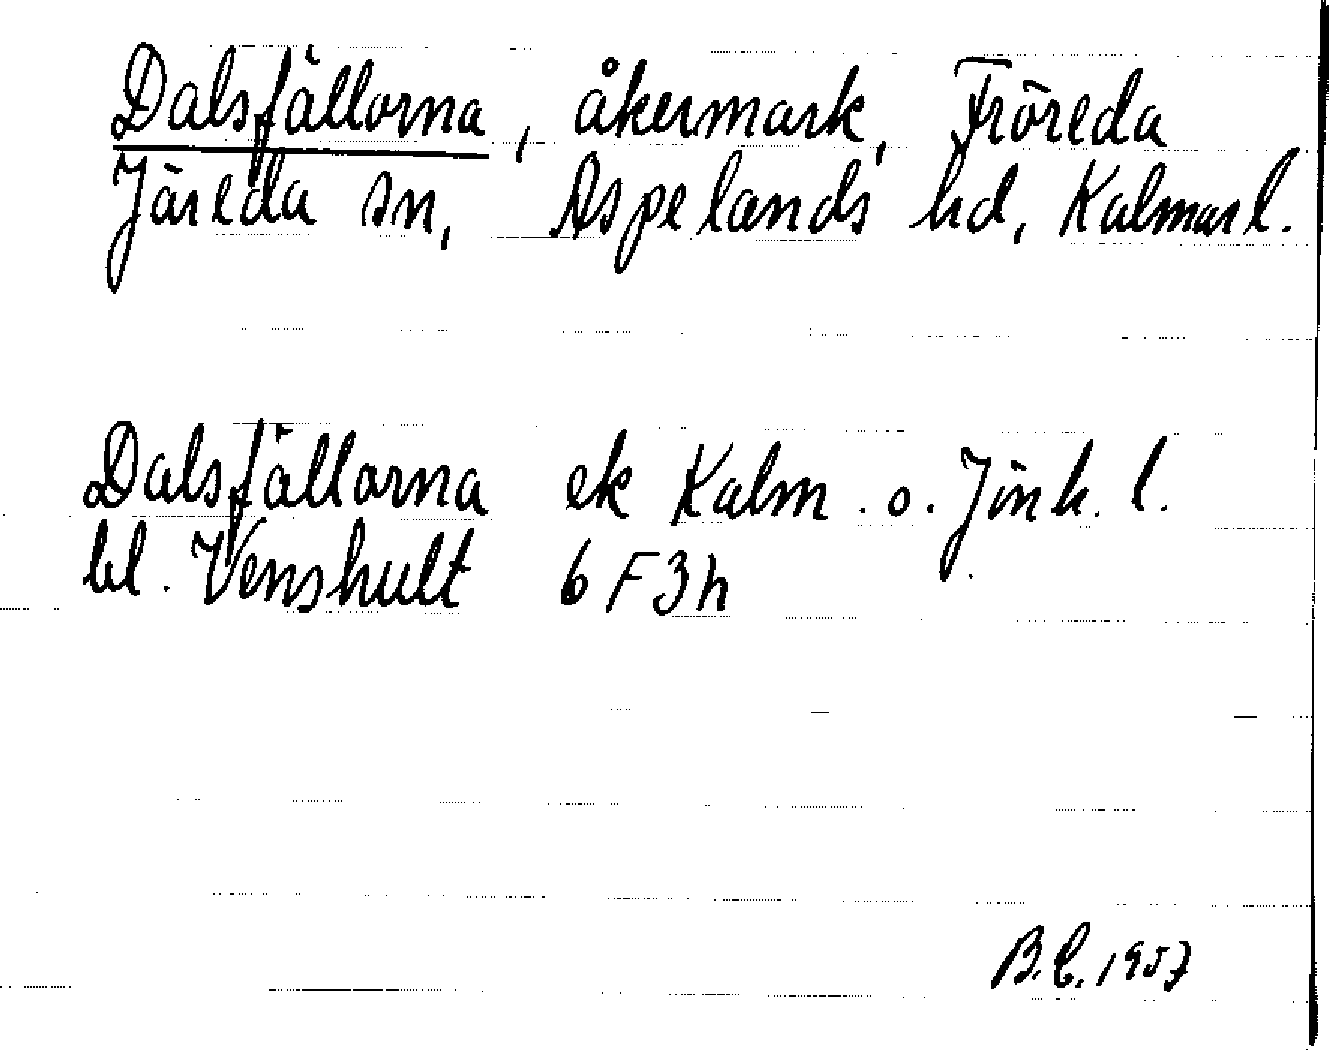 Dalsfällorna, åkermark, Fröreda
Järeda sn, Aspelands hd, Kalmar l.
Dalsfällorna ek Kalm. o. Jönk. l.
bl. Venshult 6F3h
B.C. 1957